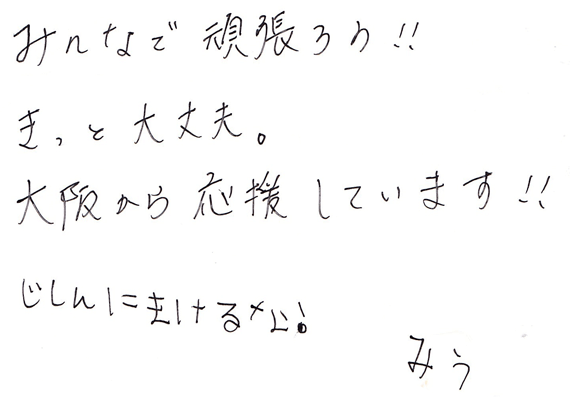 みんなで頑張ろう!!
きっと大丈夫。
大阪から応援しています!!
じしんにまけるな!
みう